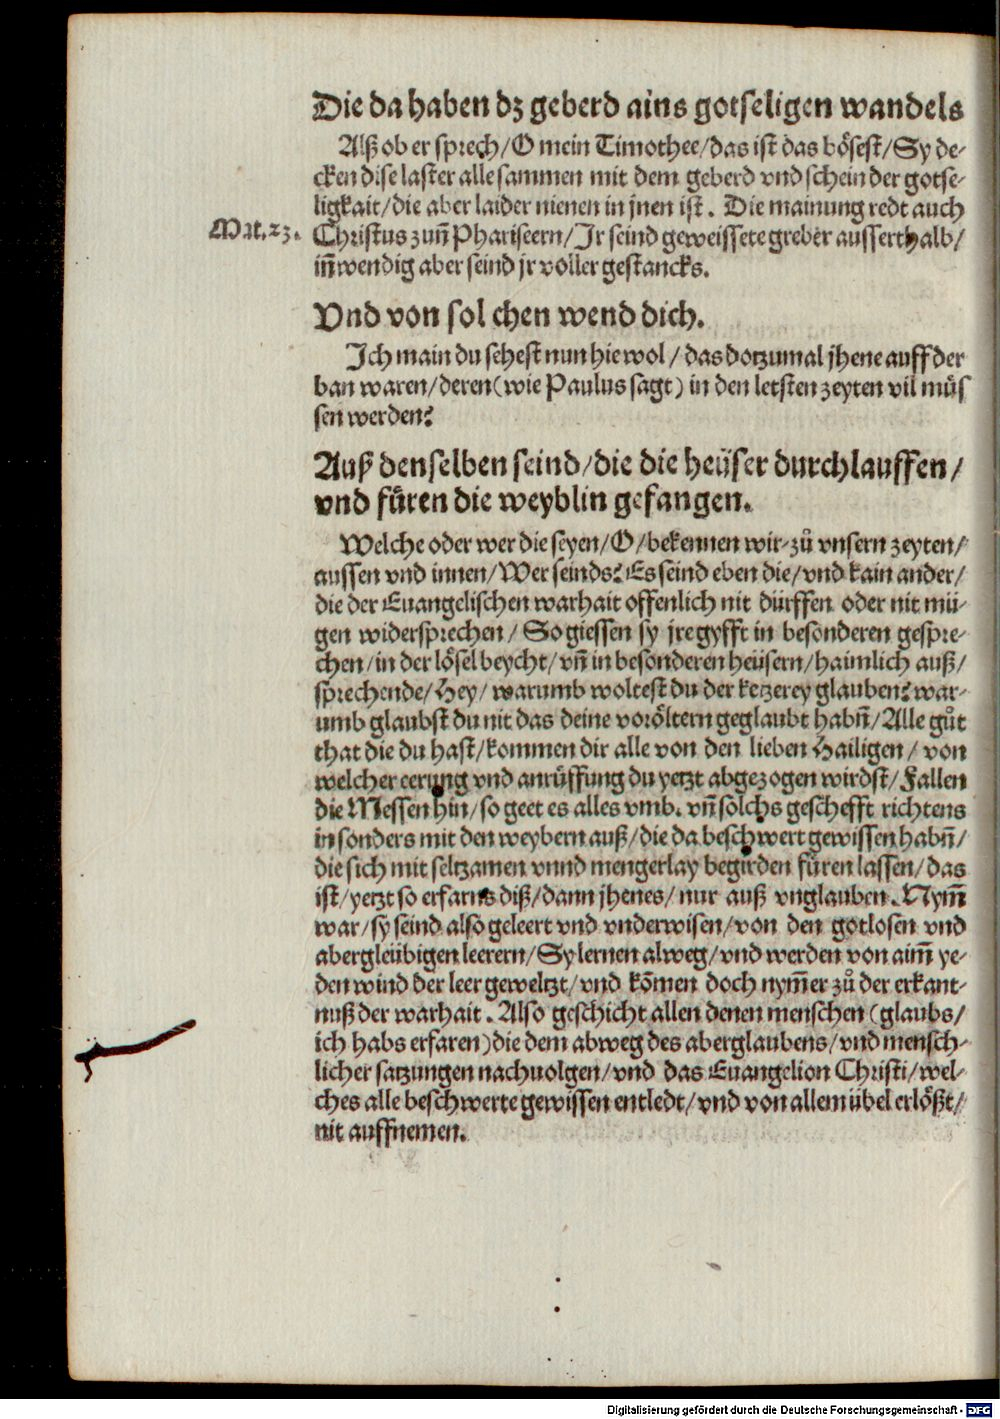 Die da haben dz geberd ains gotseligen wandels
Alß ob er sprech/O mein Timothee/das ist das bösest/Sy de-
cken dise laster alle sammen mit dem geberd vnd schein der gotse-
ligkait/die aber laider nienen in jnen ist. Die mainung redt auch
Mat.23. Christus zuñ Phariseern/Jr seind geweissete greber ausserthalb/
iñwendig aber seind jr voller gestancks.
Vnd von sol chen wend dich.
Ich main du sehest nun hie wol/das dotzumal jhene auff der
ban waren/deren(wie Paulus sagt) in den letsten zeyten vil müs
sen werden?
Auß denselben seind/die die heüser durchlauffen/
vnd füren die weyblin gefangen.
Welche oder wer die seyen/O/bekennen wir zů vnsern zeyten/
aussen vnd innen/Wer seinds? Es seind eben die/vnd kain ander/
die der Euangelischen warhait offenlich nit dürffen oder nit mü-
gen widersprechen/So giessen sy jre gyfft in besonderen gespre-
chen/in der lösel beycht/vñ in besonderen heüsern/haimlich auß/
sprechende/Hey/warumb woltest du der ketzerey glauben? war-
umb glaubst du nit das deine voröltern geglaubt habñ/Alle gůt
that die du hast/kommen dir alle von den lieben Hailigen/von
welcher eerung vnd anrüffung du yetzt abgezogen wirdst/Fallen
die Messen hin/so geet es alles vmb. vñ solchs geschefft richtens
in sonders mit den weybern auß/die da beschwert gewissen habñ/
die sich mit seltzamen vnnd mengerlay begirden füren lassen/das
ist/yetzt so erfarns diß/dann jhenes/nur auß vnglauben. Nym̃
war/sy seind also geleert vnd vnderwisen/von den gotlosen vnd
abergleübigen leerern/Sy lernen alweg/vnd werden von aim̃ ye-
den wind der leer geweltzt/vnd kõmen doch nym̃er zů der erkant-
nuß der warhait. Also geschicht allen denen menschen (glaubs/
ich habs erfaren)die dem abweg des aberglaubens/vnd mensch-
licher satzungen nachuolgen/vnd das Euangelion Christi/wel-
ches alle beschwerte gewissen entledt/vnd von allem übel erlößt/
nit auffnemen.
Digitalisierung gefördert durch die Deutsche Forschungsgemeinschaft - DFG